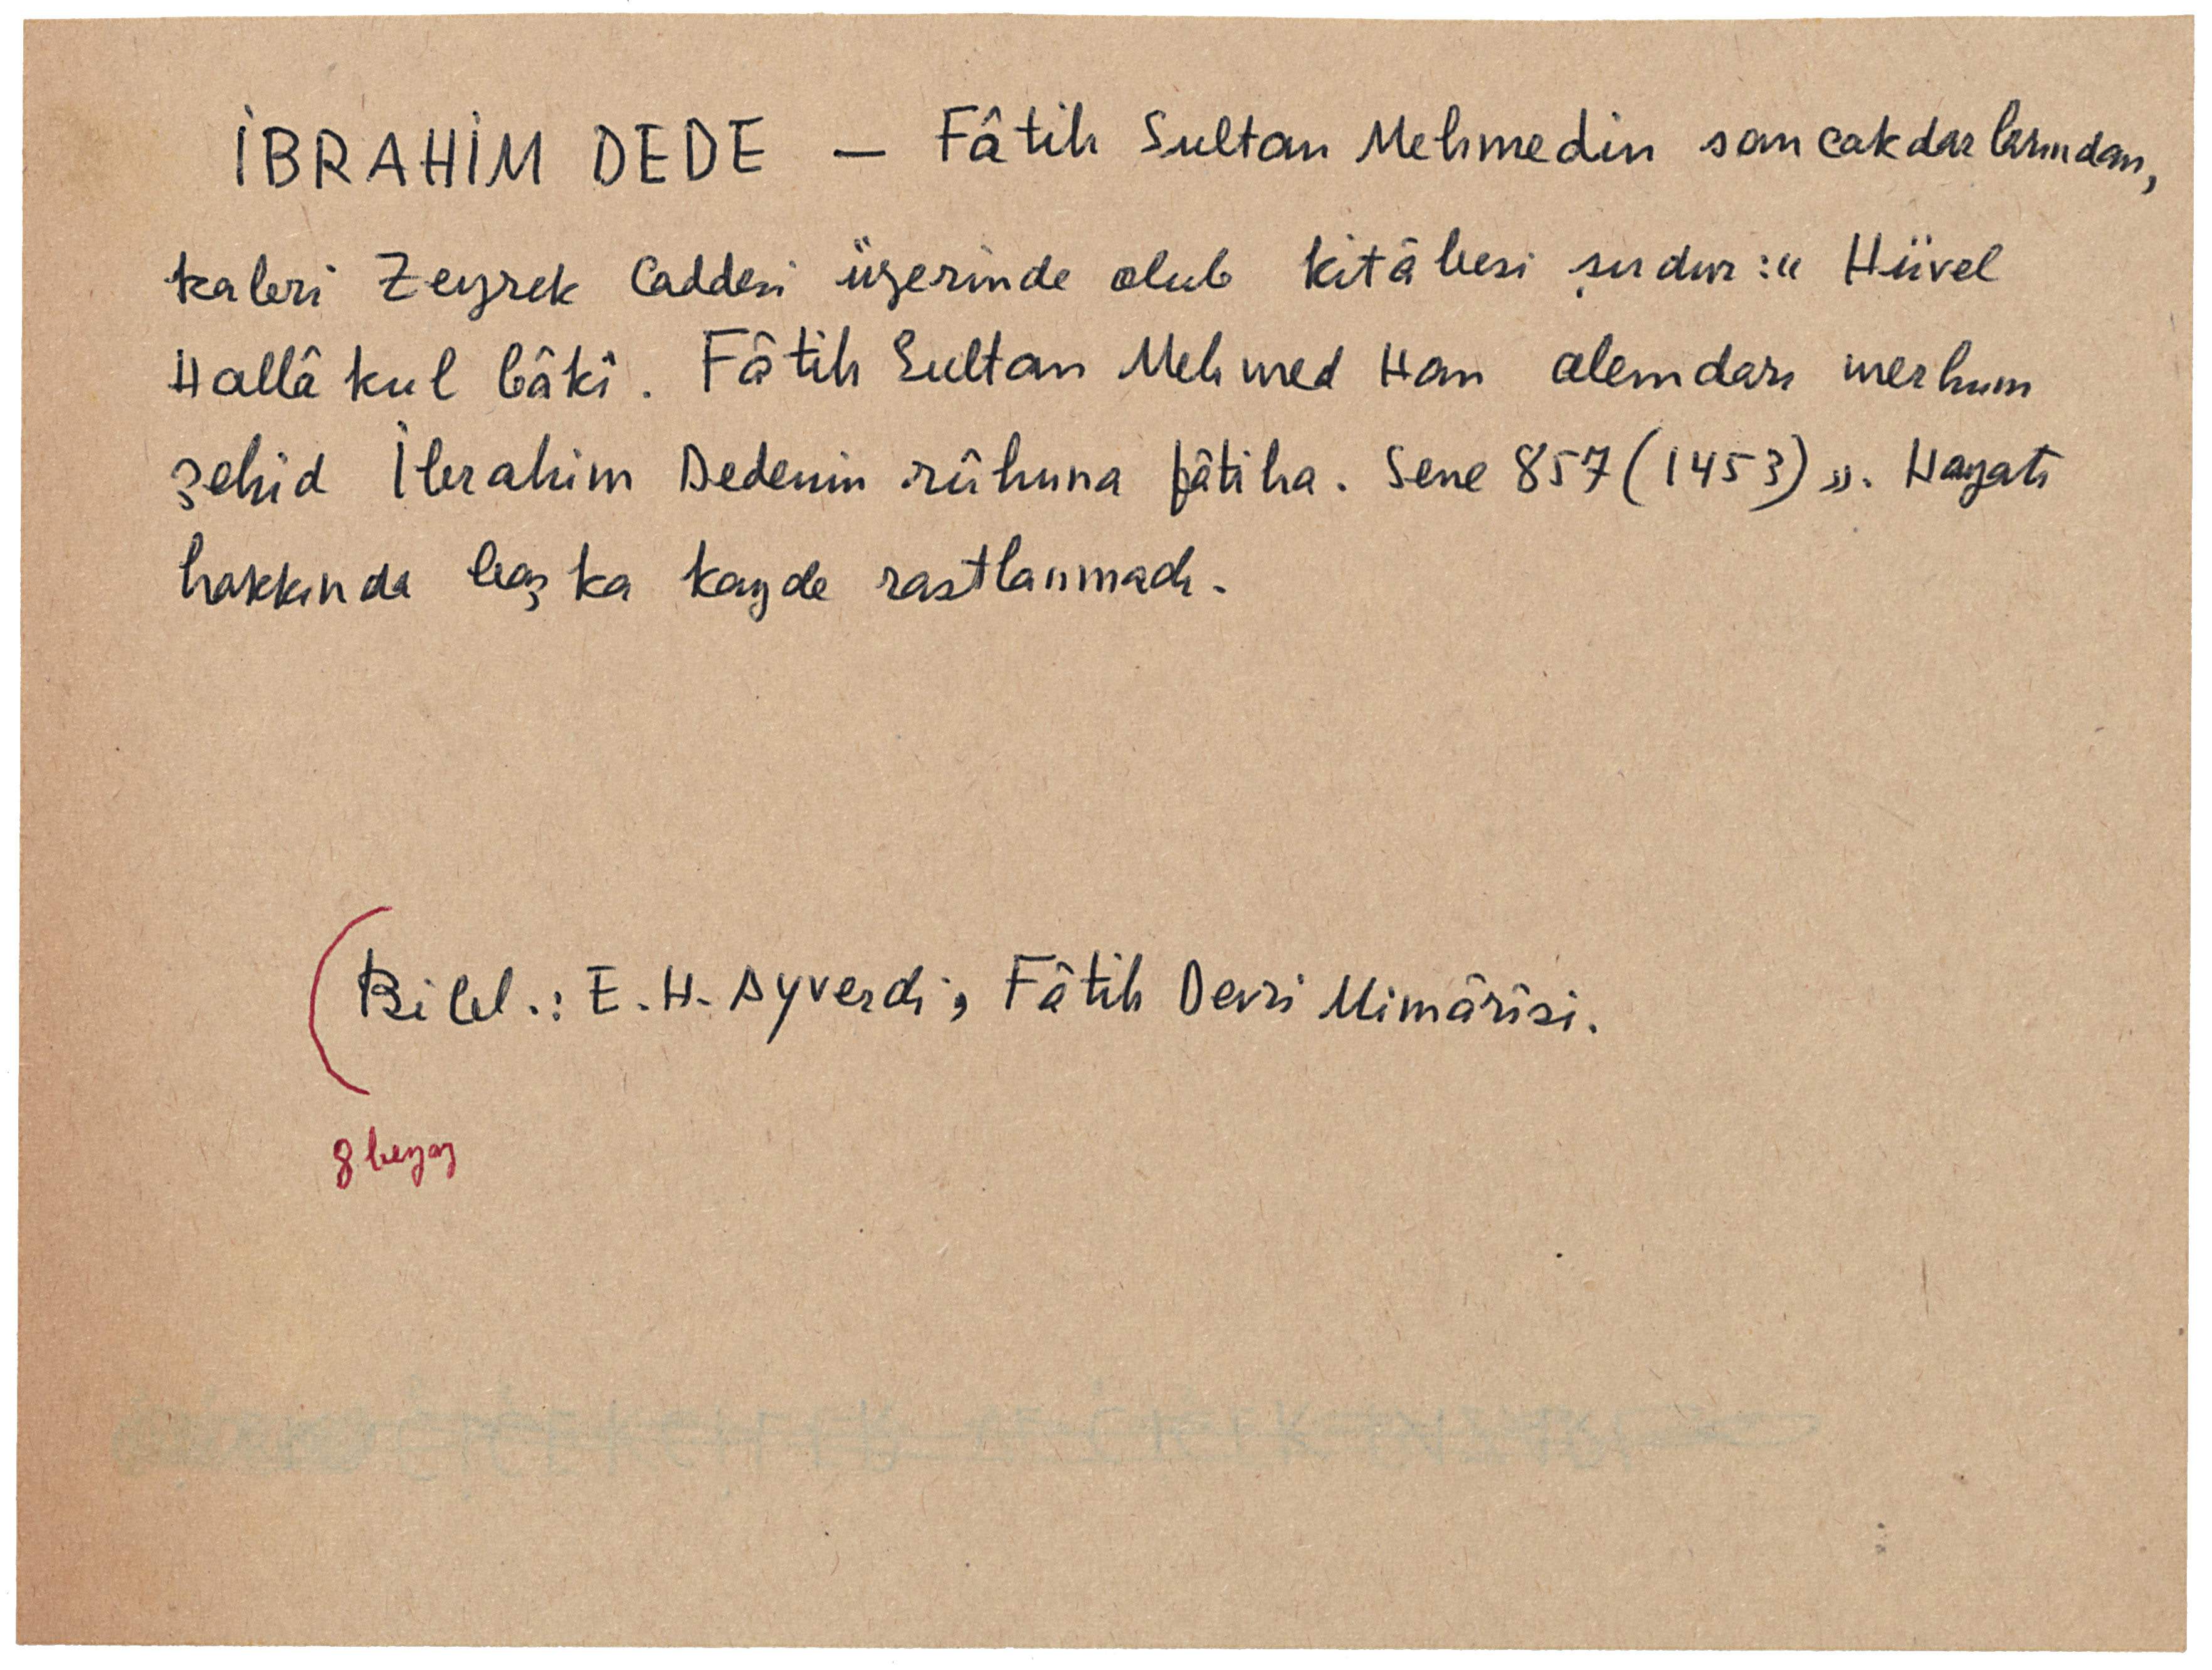 İBRAHİM DEDE — Fâtih Sultan Mehmedin sancakdarlarından,
kabri Zeyrek Caddesi üzerinde olub kitâbesi şudur: « Hüvel
Hallâkul bâkî. Fâtih Sultan Mehmed Han alemdarı merhum
şehid İbrahim Dedenin rûhuna fâtiha. Sene 857 (1453) ». Hayatı
hakkında başka kayde rastlanmadı.
Bibl.: E. H. Ayverdi, Fâtih Devri Mimârîsi.
8 beyaz